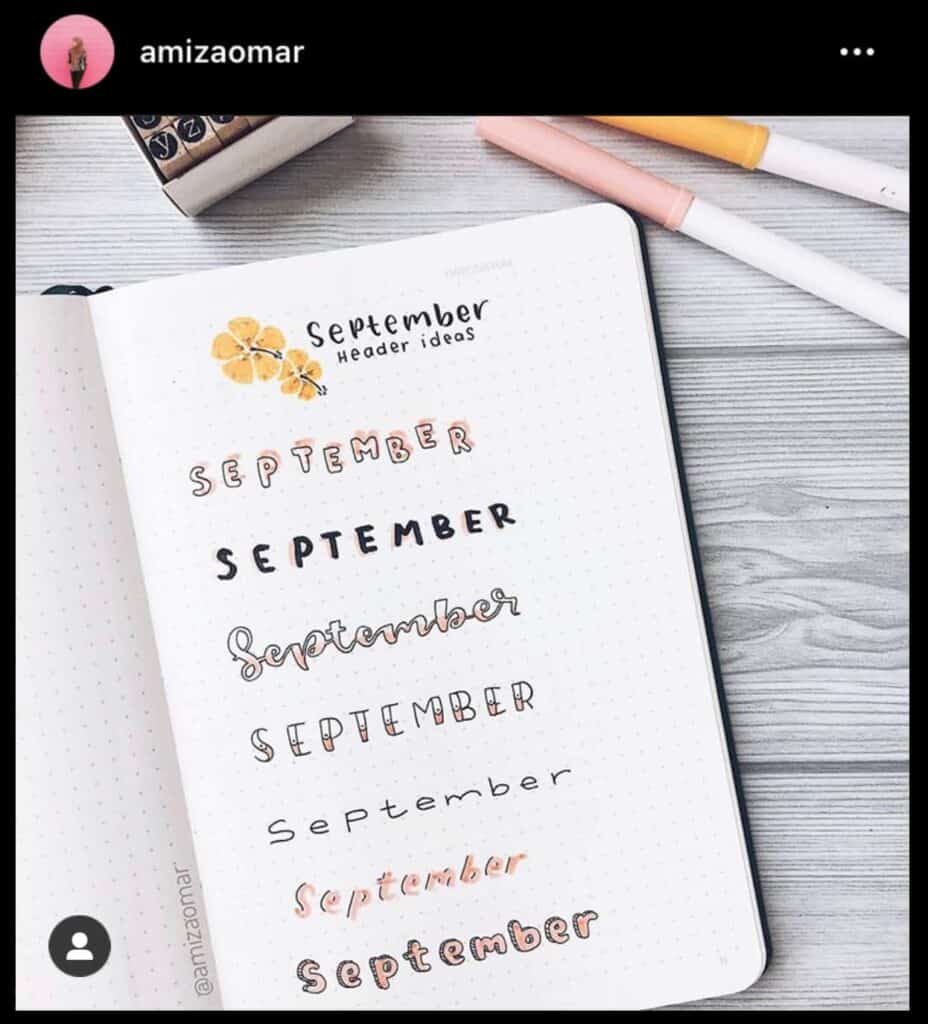 amizaomar
y z
September
Header ideas
SEPTEMBER
SEPTEMBER
September
SEPTEMBER
September
September
September
@amizaomar